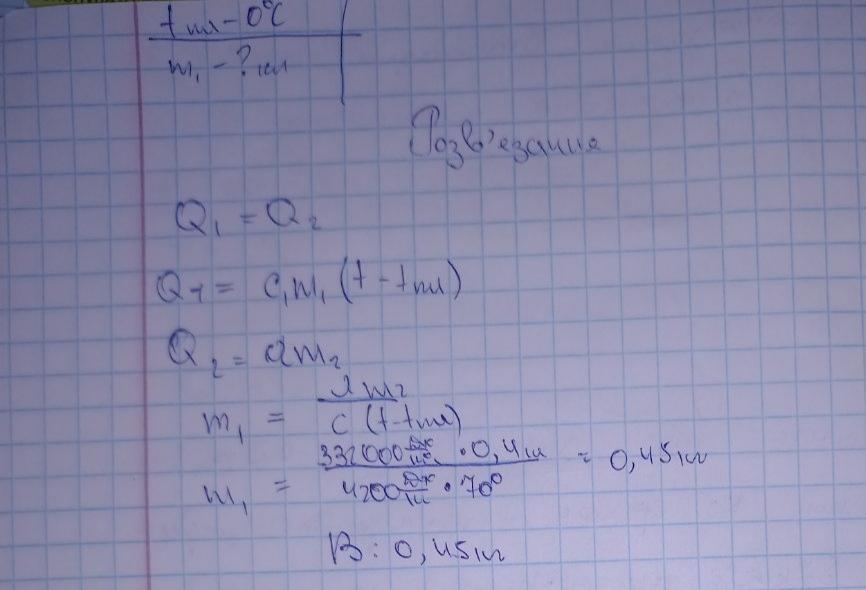 tпл - 0°C
m₁ - ? кг
Розв'езання
Q₁ = Q₂
Q₁ = c₁m₁ (t - tпл)
Q₂ = λm₂
m₁ = λm₂ / c (t - tпл)
m₁ = 332000 Дж/кг · 0,4 кг / 4200 Дж/кг · 70° = 0,45 кг
В: 0,45 кг